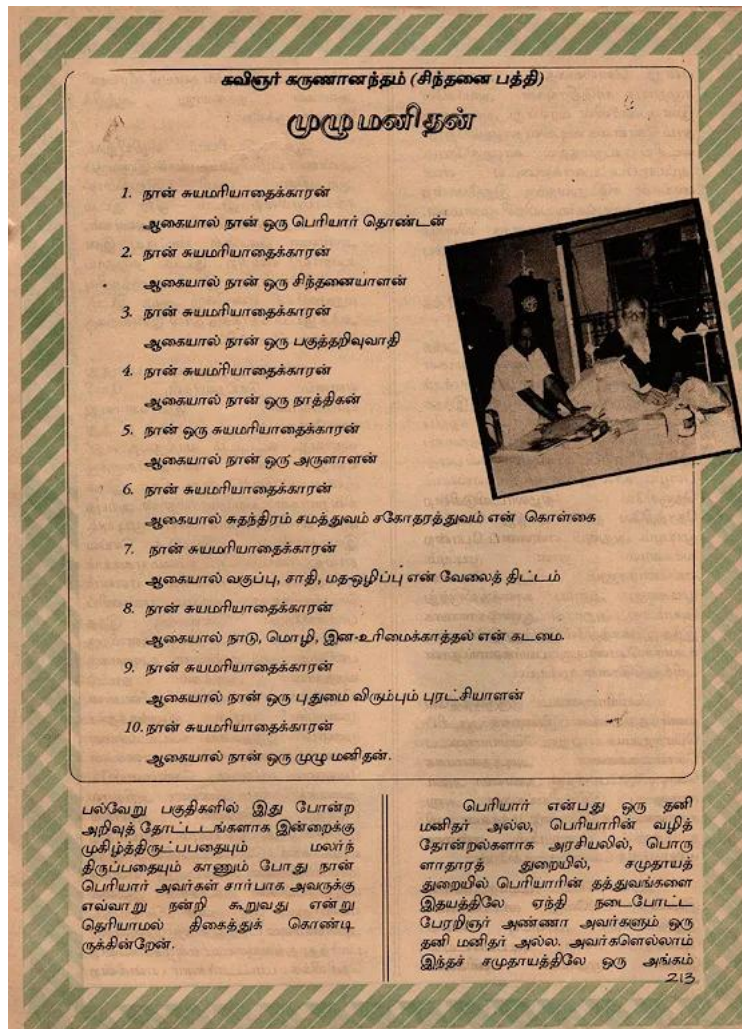 கவிஞர் கருணானந்தம் (சிந்தனை பத்தி)
முழு மனிதன்
1. நான் சுயமரியாதைக்காரன்
ஆகையால் நான் ஒரு பெரியார் தொண்டன்
2. நான் சுயமரியாதைக்காரன்
ஆகையால் நான் ஒரு சிந்தனையாளன்
3. நான் சுயமரியாதைக்காரன்
ஆகையால் நான் ஒரு பகுத்தறிவுவாதி
4. நான் சுயமரியாதைக்காரன்
ஆகையால் நான் ஒரு நாத்திகன்
5. நான் ஒரு சுயமரியாதைக்காரன்
ஆகையால் நான் ஒரு அருளாளன்
6. நான் சுயமரியாதைக்காரன்
ஆகையால் சுதந்திரம் சமத்துவம் சகோதரத்துவம் என் கொள்கை
7. நான் சுயமரியாதைக்காரன்
ஆகையால் வகுப்பு, சாதி, மத-ஒழிப்பு என் வேலைத் திட்டம்
8. நான் சுயமரியாதைக்காரன்
ஆகையால் நாடு, மொழி, இன-உரிமைக்காத்தல் என் கடமை.
9. நான் சுயமரியாதைக்காரன்
ஆகையால் நான் ஒரு புதுமை விரும்பும் புரட்சியாளன்
10. நான் சுயமரியாதைக்காரன்
ஆகையால் நான் ஒரு முழு மனிதன்.
பல்வேறு பகுதிகளில் இது போன்ற
அறிவுத் தோட்டடங்களாக இன்றைக்கு
முகிழ்த்திருட்பபதையும் மலர்ந்
திருப்பதையும் காணும் போது நான்
பெரியார் அவர்கள் சார்பாக அவருக்கு
எவ்வாறு நன்றி கூறுவது என்று
தெரியாமல் திகைத்துக் கொண்டி
ருக்கின்றேன்.
பெரியார் என்பது ஒரு தனி
மனிதர் அல்ல, பெரியாரின் வழித்
தோன்றல்களாக அரசியலில், பொரு
ளாதாரத் துறையில், சமுதாயத்
துறையில் பெரியாரின் தத்துவங்களை
இதயத்திலே ஏந்தி நடைபோட்ட
பேரறிஞர் அண்ணா அவர்களும் ஒரு
தனி மனிதர் அல்ல. அவர்களெல்லாம்
இந்தச் சமுதாயத்திலே ஒரு அங்கம்
213